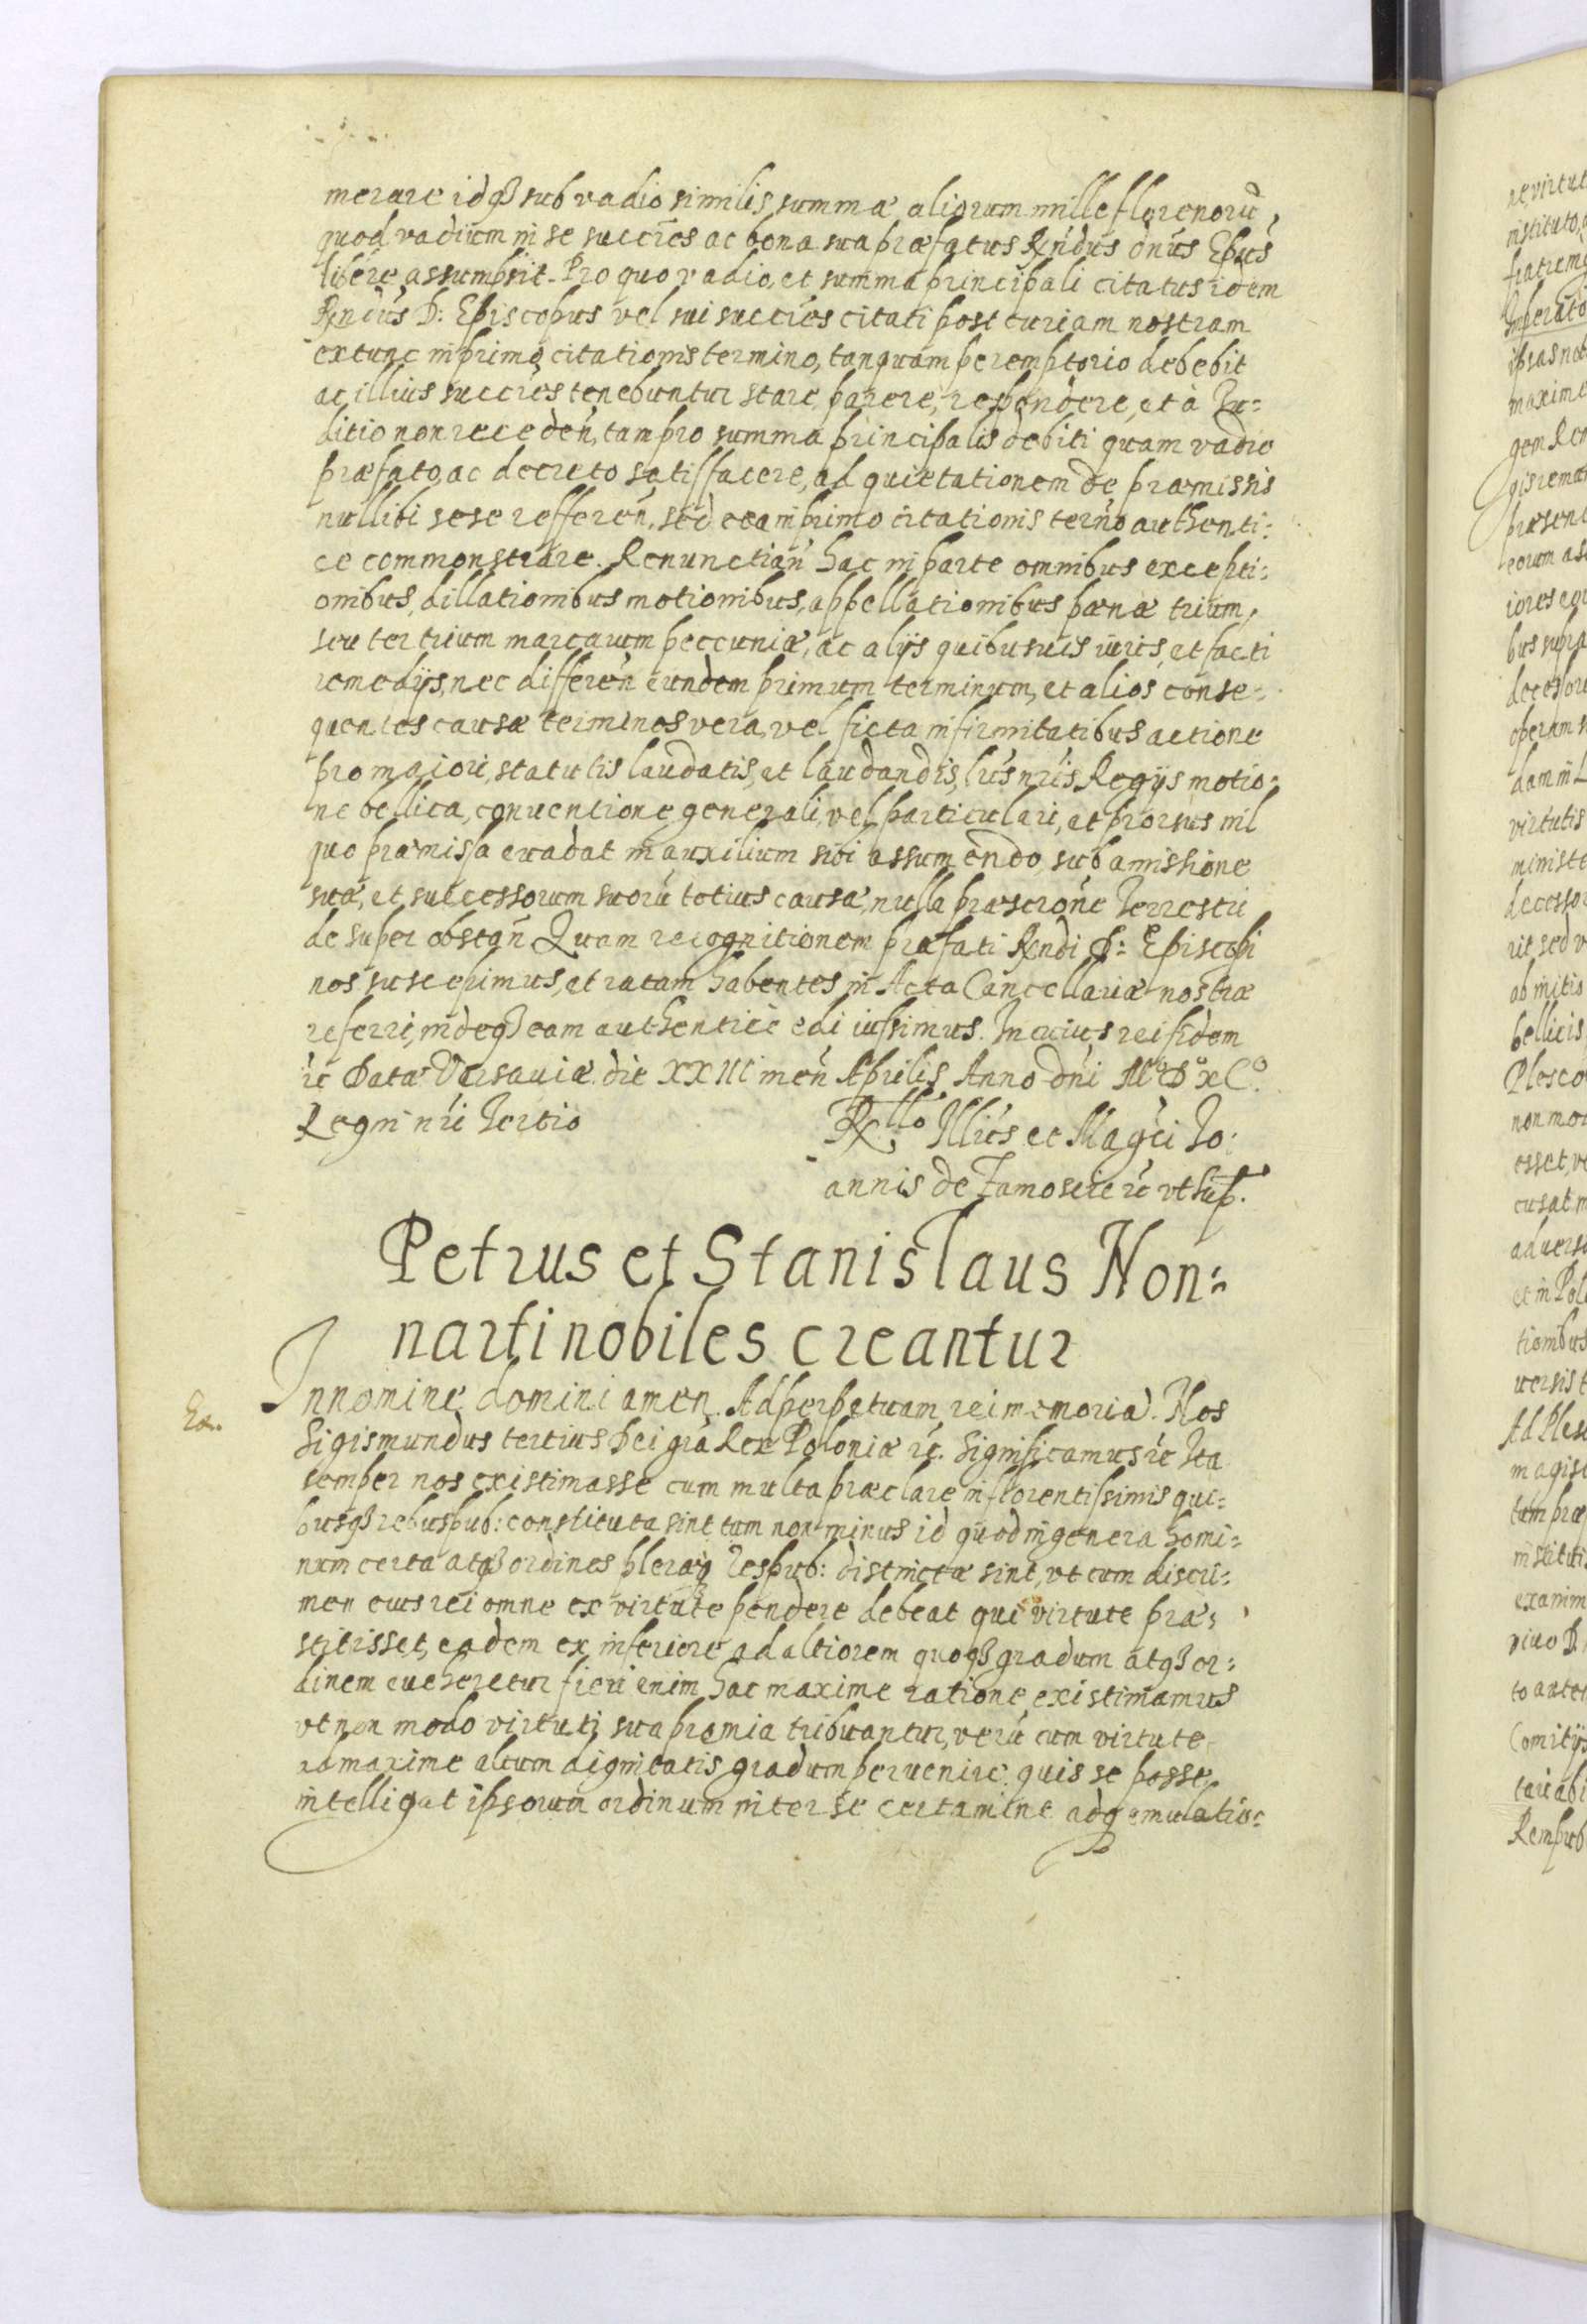 merare idqȝ sub vadio similis summæ aliorum mille florenorū,
quod vadium in se succr̄es ac bona sua præfatus Rn̄dus dn̄us Ep̄us
libere assumpsit. Pro quo vadio, et summa principali citatus idem
Rn̄dus D: Episcopus vel sui succr̄es citati post curiam nostram
extunc in primo citationis termino, tanquam peremptorio debebit
ac illius succr̄es tenebuntur stare, parere, respondere, et à Iu=
ditio non receden̄, tam pro summa principalis debiti quam vadio
præfato, ac decreto satisfacere, ad quietationem de præmissis
nullibi sese refferen̄, sed eam in primo citationis ter̄no authenti=
ce commonstrare. Renunctian̄ hac in parte omnibus excepti=
onibus, dillationibus motionibus, appellationibus pænæ trium,
seu ter trium marcarum peccuniæ, ac alijs quibusuis iuris, et facti
remedijs, nec differen̄ eundem primum terminum, et alios conse=
quentes causæ terminos vera, vel ficta infirmitatibus actione
pro maiori, statutis laudatis, et laudandis, lr̄is nr̄is Regijs motio=
ne bellica, conuentione generali, vel particulari, et prorsus nil
quo præmissa euadat in auxilium sibi assumendo, sub amissione
suæ, et successorum suorū totius causæ, nulla præscrione Terrestri
de super obstan̄ Quam recognitionem præfati Rndi D: Episcopi
nos suscepimus, et ratam habentes in Acta Cancellariæ nostræ
referri, indeqȝ eam authenticè edi iussimus. In cuius rei fidem
rc̄ Datæ Varsauiæ die XXIII men̄ Aprilis Anno dn̄i Mº Dº xCº.
Regni nr̄i Tertio
R<sup>llo</sup> Illr̄is et Mag̃ci Io:
annis de Zamoscie rc̄ vt sup.
Petrus et Stanislaus Non=
narti nobiles creantur
Ex.
In nomine domini amen. Ad perpetuam rei memoriā. Nos
Sigismundus tertius Dei gr̄a Rex Poloniæ rc̄. Significamus rc̄ Ita
semper nos existimasse cum multa præclare in florentissimis qui=
busqȝ rebuspub: constituta sint tum non minus id quod in genera homi=
num certa atqȝ ordines pleræqȝ Respub: distinctæ sint, vt cum discri=
men eius rei omne ex virtute pendere debeat qui virtute præ=
stitisset, eadem ex inferiore ad altiorem quoqȝ gradum atqȝ or=
dinem eueheretur fieri enim hac maxime ratione existimamus
vt non modo virtuti sua premia tribuantur, verū cum virtute
ad maxime altum dignitatis gradum peruenire quis se posse
intelligat ipsorum ordinum inter se certamine adqȝ emulatio=